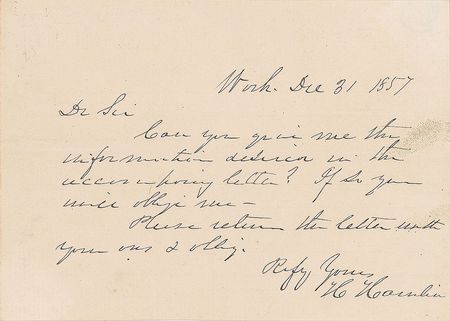 Wash. Dec 31 1857
Dr Sir
Can you give me the
information desired in the
accompanying letter? If so you
will oblige me—
Please return the letter with
your ans & oblig.
Refy Yours
H Hamlin